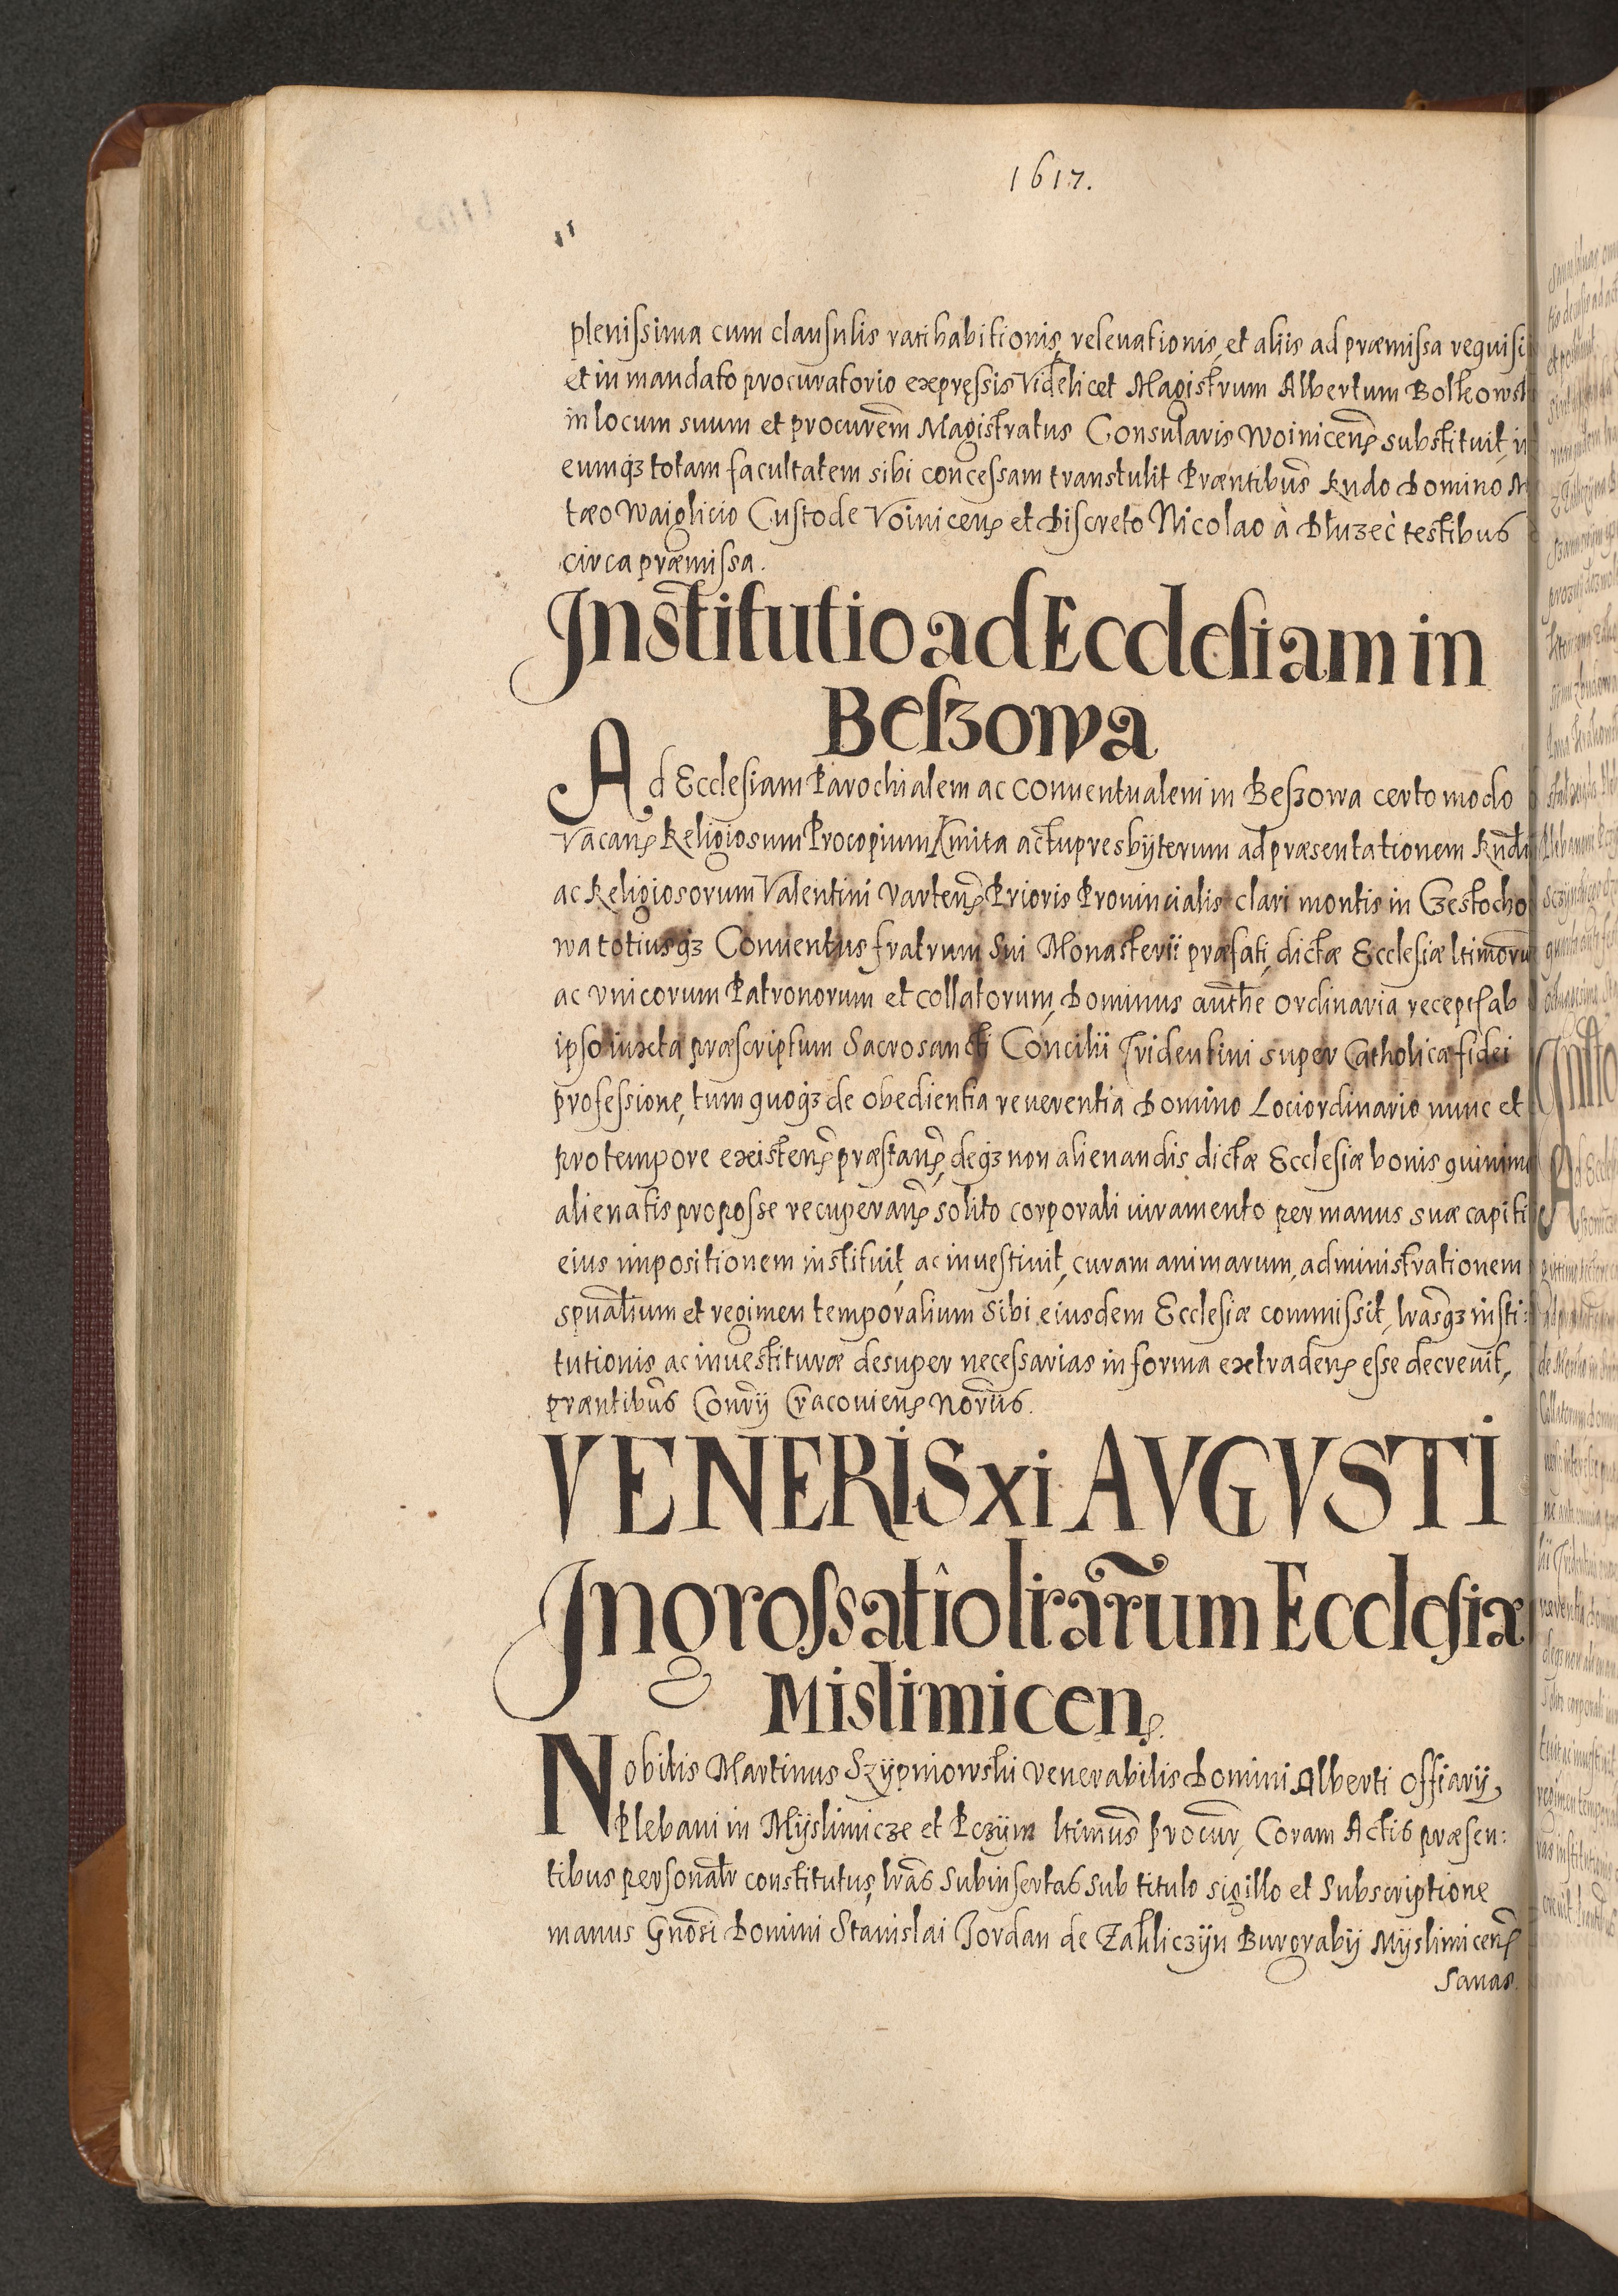 1617.
plenissima cum clausulis ratihabitionis, releuationis, et aliis ad præmissa requisi
et in mandato procuratorio expressis Videlicet Magistrum Albertum Bolkowsk
in locum suum et procurem̄ Magistratus Consularis Woinicen̄ substituit, in
eumq3 totam facultatem sibi concessam transtulit Præntibus̄ Rndo Domino M
tæo Waiglicio Custode Voinicen̄ et Discreto Nicolao à Dłuzec testibus
circa præmissa.
Institutio ad Ecclesiam in
Beszowa
Ad Ecclesiam Parochialem ac conuentualem in Beszowa certo modo
Vacan̄ Religiosum Procopium Kmita actu presbÿterum ad præsentationem Rn̄do
ac Religiosorum Valentini Varten̄ Prioris Prouincialis clari montis in Czestocho
wa totiusq3 Conuentus fratrum Sui Monasterii præfati, dictæ Ecclesiæ ltimoru̅
ac vnicorum Patronorum et collatorum, Dominus auth̄e ordinaria recepta ab
ipso iuxta præscriptum Sacrosancti Concilii Tridentini super Catholicæ fidei
professione, tum quoq3 de obedientia reuerentia Domino Lociordinario nunc et
pro tempore existen̄ præstan̄, deq3 non alienandis dictæ Ecclesiæ bonis quinimo
alienatis pro posse recuperan̄ solito corporali iuramento per manus suæ capiti
eius impositionem instituit, ac inuestiuit, curam animarum, administrationem
spūalium et regimen temporalium Sibi eiusdem Ecclesiæ commissit, lrasq3 insti:
tutionis ac inuestituræ desuper necessarias in forma extraden̄ esse decreuit,
præntibus̄ Conrÿ Cracouien̄ Norīis.
VENERIS xi AVGVSTI
Ingrossatio lrarum Ecclesiæ
Mislimicen̄
Nobilis Martinus Szÿpniowski Venerabilis Domini Alberti Offiarÿ,
Plebani in Mÿslimicze et Pczÿm ltimus̄ procur̄, Coram Actis præsen:
tibus personalr̄ constitutus, lras̄ Subinsertas Sub titulo sigillo et Subscriptione
manus Gnosī Domini Stanislai Jordan de Zakliczÿn Burgrabÿ Mÿslimicen̄
Sanas.